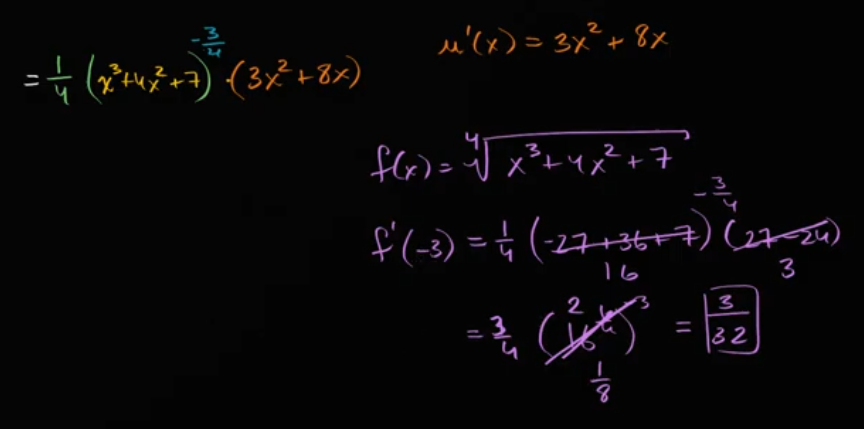 = 1/4 (x³+4x²+7)^(-3/4) · (3x²+8x)
u'(x) = 3x²+8x
f(x) = ⁴√(x³+4x²+7)
f'(-3) = 1/4 (-27+36+7)^(-3/4) (27-24)
16 3
= 3/4 (16^(1/4))^(-3) = 3/32
2
1/8